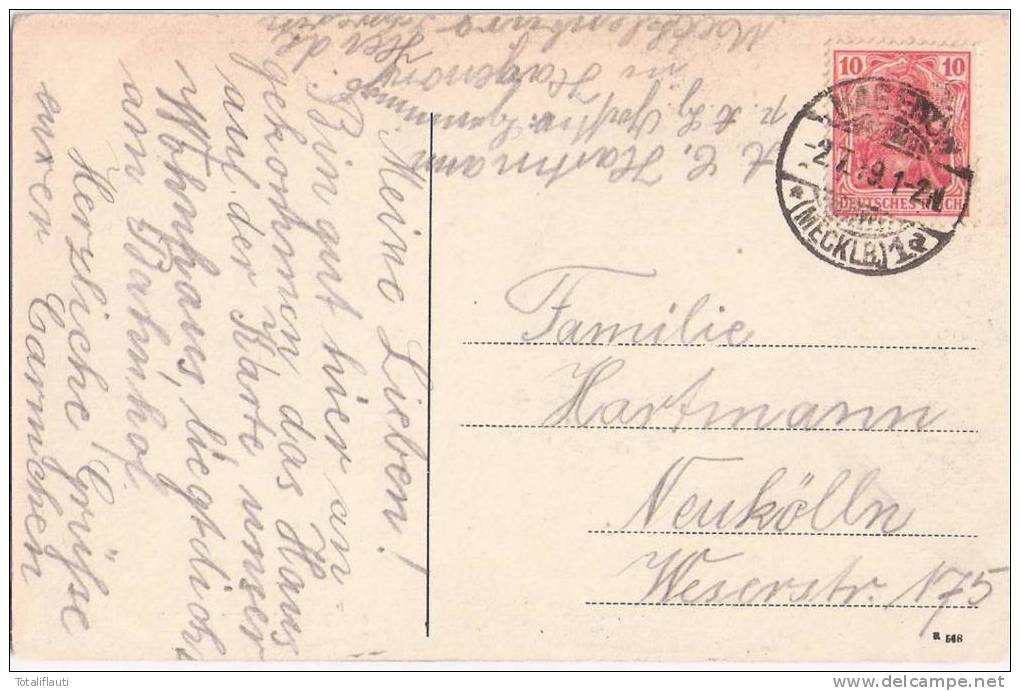 Meine Lieben!
Bin gut hier an
gekommen das Haus
auf der Karte unser
Wohnhaus, liegt dich
am Bahnhof
Herzliche Grüße
eurer Carmchen
A C, Hartmann
in Hagenow
Mecklenburg Schwerin
10 10
DEUTSCHES REICH
HAGENOW
-2.7.19.1-2N
* (MECKLB.) 1a
Familie
Hartmann
Neukölln
Weserstr. 175
R 568
Totaliflauti
delcampe.net